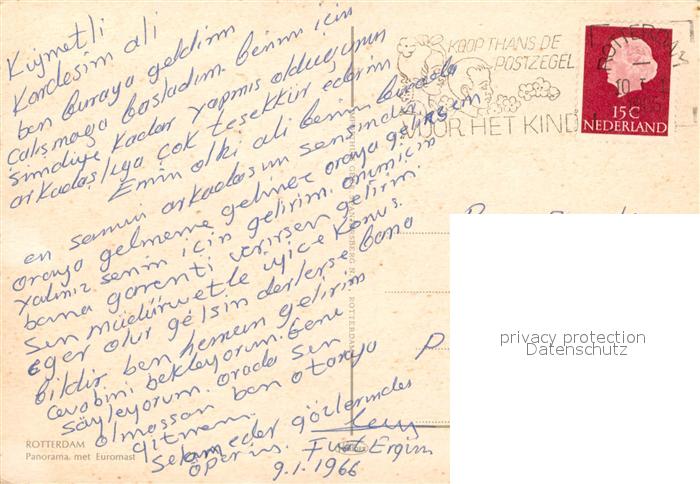 Kıymetli
Kardeşim ali
ben buraya geldim
çalışmaya başladım benim için
şimdiye kadar yapmış olduğunun
arkadaşlığa çok teşekkür ederim
Emin olki ali benim burada
en samimi arkadaşım sensindir
oraya gelmeme gelince oraya gelirsem
yalnız senin için gelirim. onun için
bana garanti verirsen gelirim.
sen müdüriyetle iyice konuş.
eğer olur gelsin derlerse bana
bildir ben hemen gelirim
cevabını bekleyorum. Gene
söyleyorum. orada sen
olmassan ben otaraya
gitmem.
Selam eder gözlerinden
öperim.
Fuat Ergin
9.1.1966
ROTTERDAM
Panorama met Euromast
KOOP THANS DE
POSTZEGEL
VOOR HET KIND
ROTTERDAM
15 C
NEDERLAND
ROTTERDAM
P
privacy protection
Datenschutz